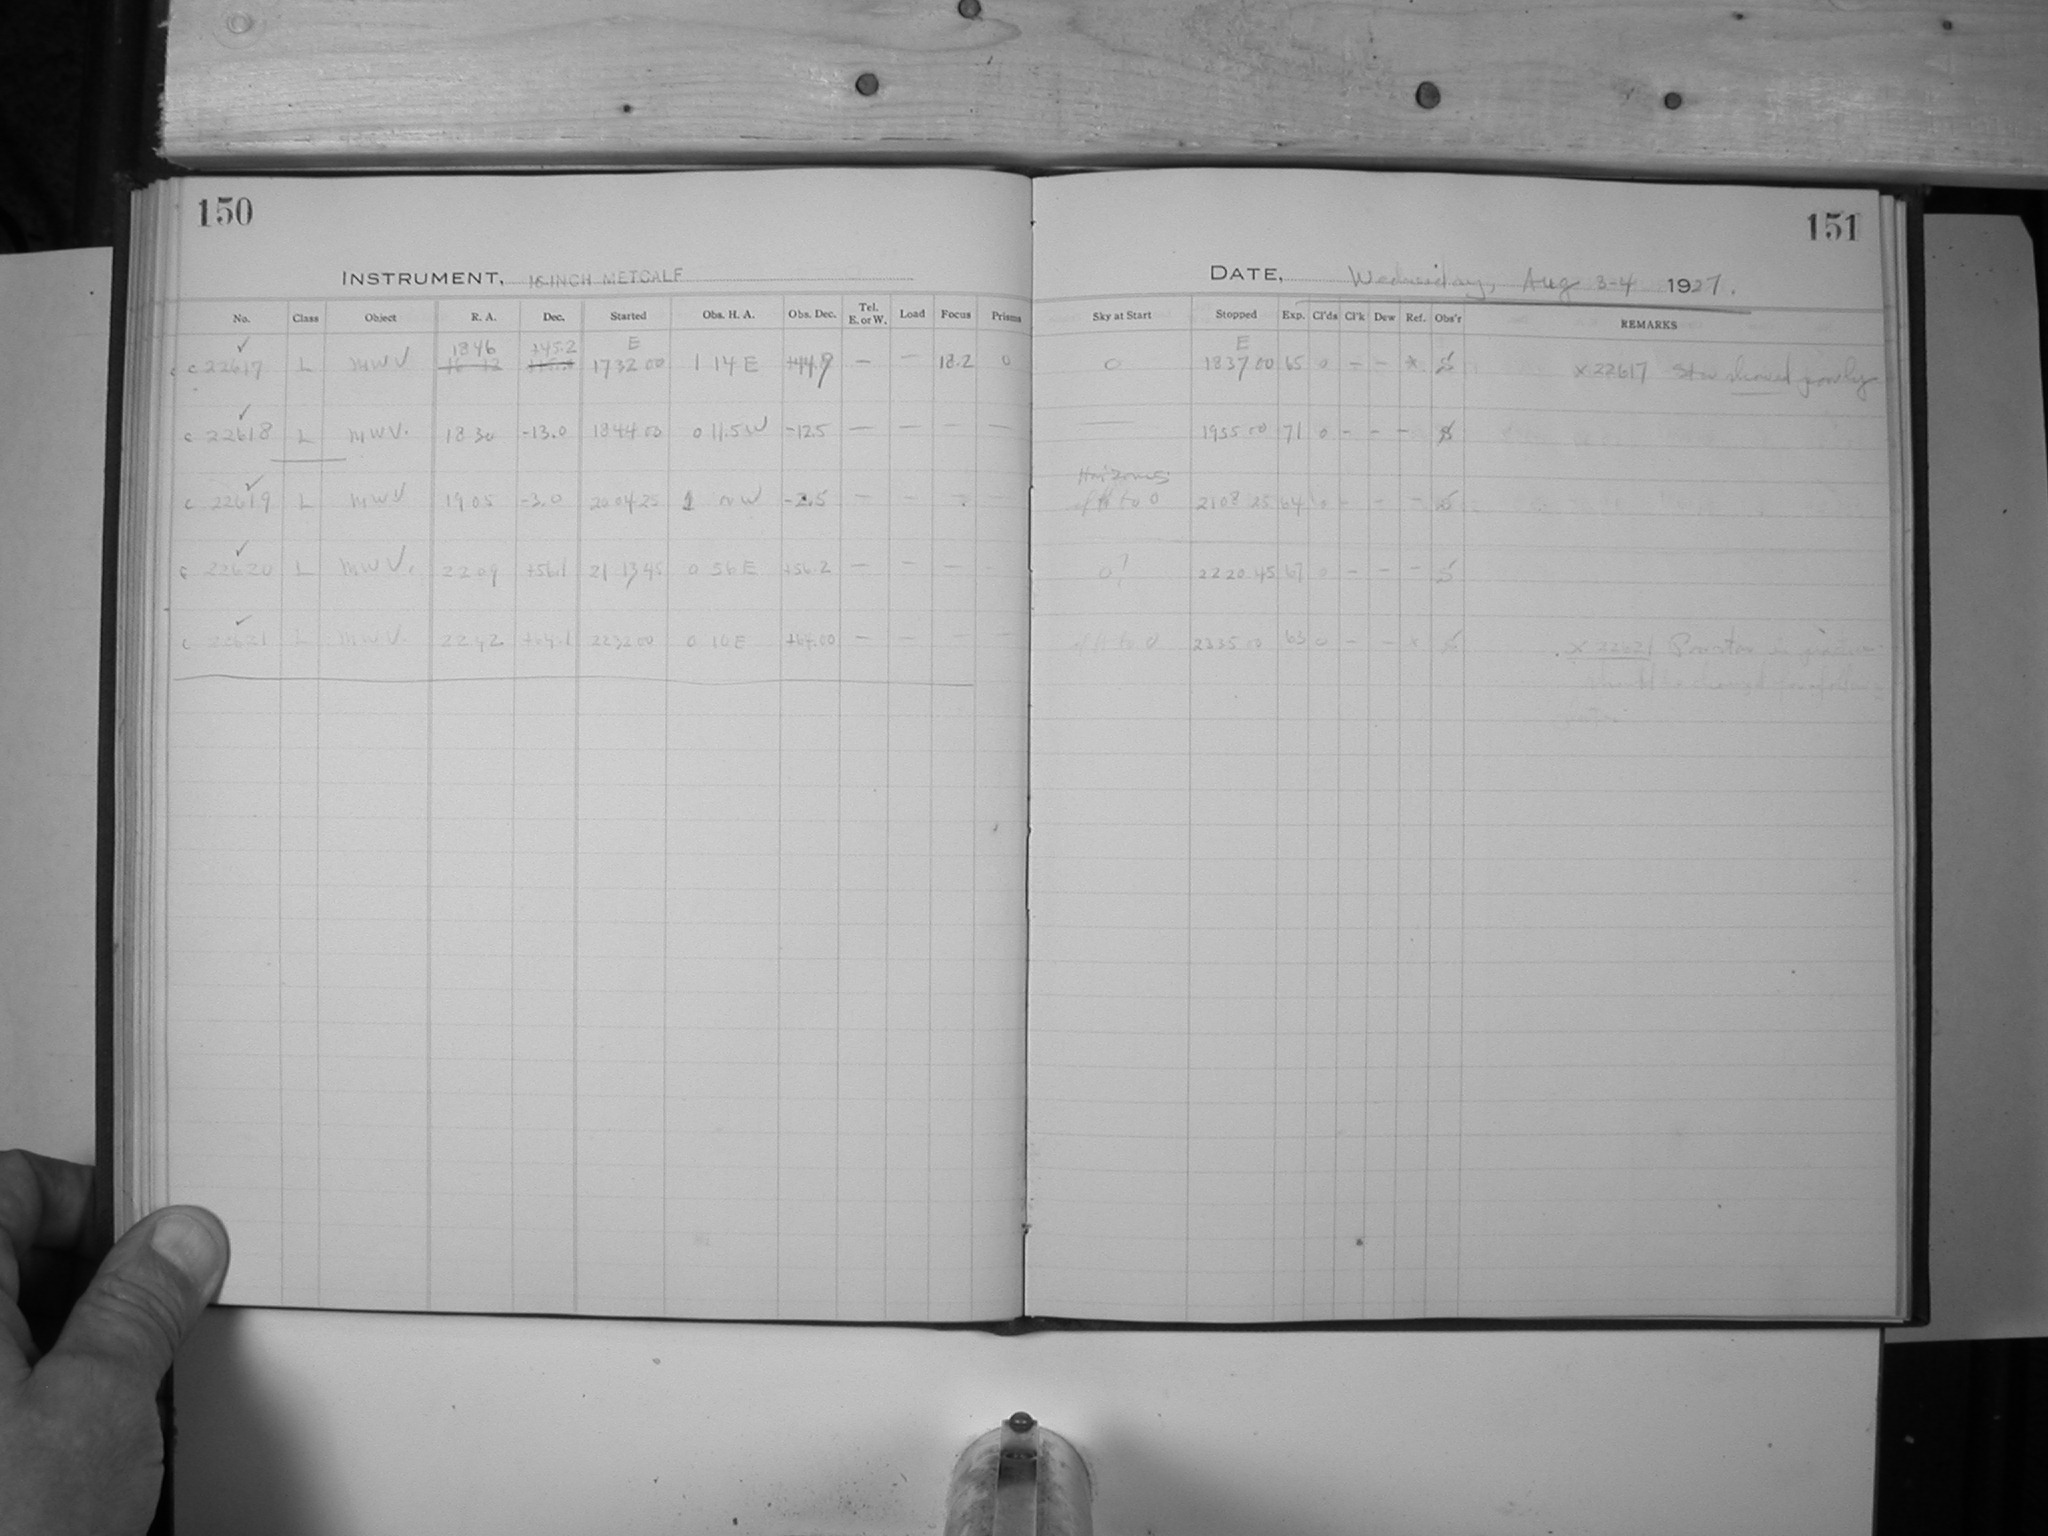 150
INSTRUMENT, 16 INCH METCALF
No. Class Object R. A. Dec. Started Obs. H. A. Obs. Dec. Tel. E. or W. Load Focus Prisms
1846 +45.2 E
c 22617 L MWV 1732 00 1 14 E +44.9 — — 18.2 0
c 22618 L MWV. 18 30 -13.0 1844 00 0 11.5 W -12.5 — — — —
c 22619 L MWV 19 05 -3.0 20 04 25 1 W -2.5 — — —
c 22620 L MWV. 22 09 +56.1 21 13 45 0 56 E +56.2 — — —
c 22621 L MWV. 22 42 2232 00 0 10 E +64.00 — — — —
151
DATE, Wednesday, Aug 3-4 1927.
Sky at Start Stopped Exp. Cl'ds Cl'k Dew Ref. Obs'r REMARKS
E
0 1837 00 65 0 — — * x 22617 Star showed poorly
— 1955 00 71 0 - - -
to 0 2108 25 64 0 - - -
0? 2220 45 67 0 - - -
to 0 2335 00 63 0 - - x x 22621